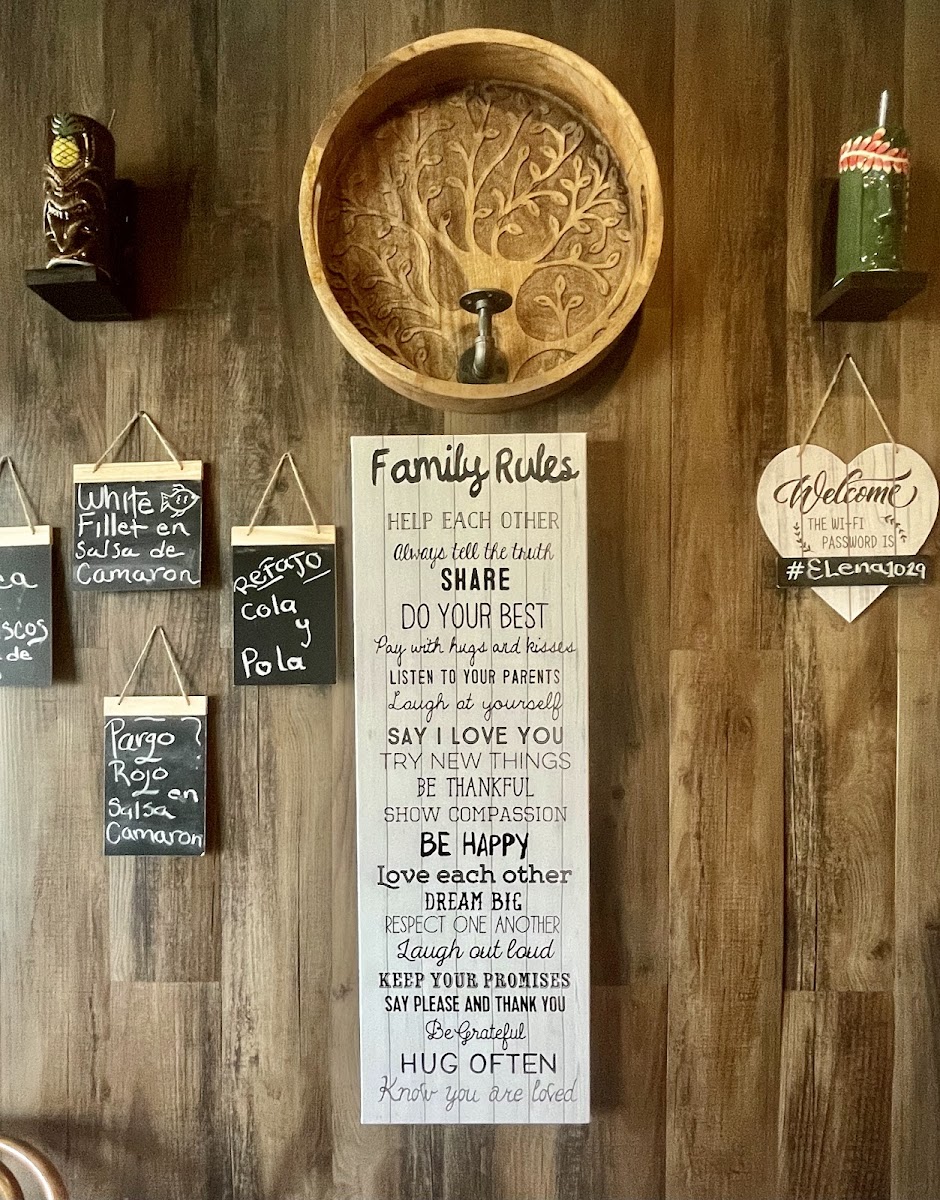 ca
scos
de
White
Fillet en
Salsa de
Camaron
Refajo
Cola
y
Pola
Pargo ?
Rojo
en
Salsa
Camaron
Family Rules
HELP EACH OTHER
Always tell the truth
SHARE
DO YOUR BEST
Pay with hugs and kisses
LISTEN TO YOUR PARENTS
Laugh at yourself
SAY I LOVE YOU
TRY NEW THINGS
BE THANKFUL
SHOW COMPASSION
BE HAPPY
Love each other
DREAM BIG
RESPECT ONE ANOTHER
Laugh out loud
KEEP YOUR PROMISES
SAY PLEASE AND THANK YOU
Be Grateful
HUG OFTEN
Know you are loved
Welcome
THE WI-FI
PASSWORD IS
#ELena1029